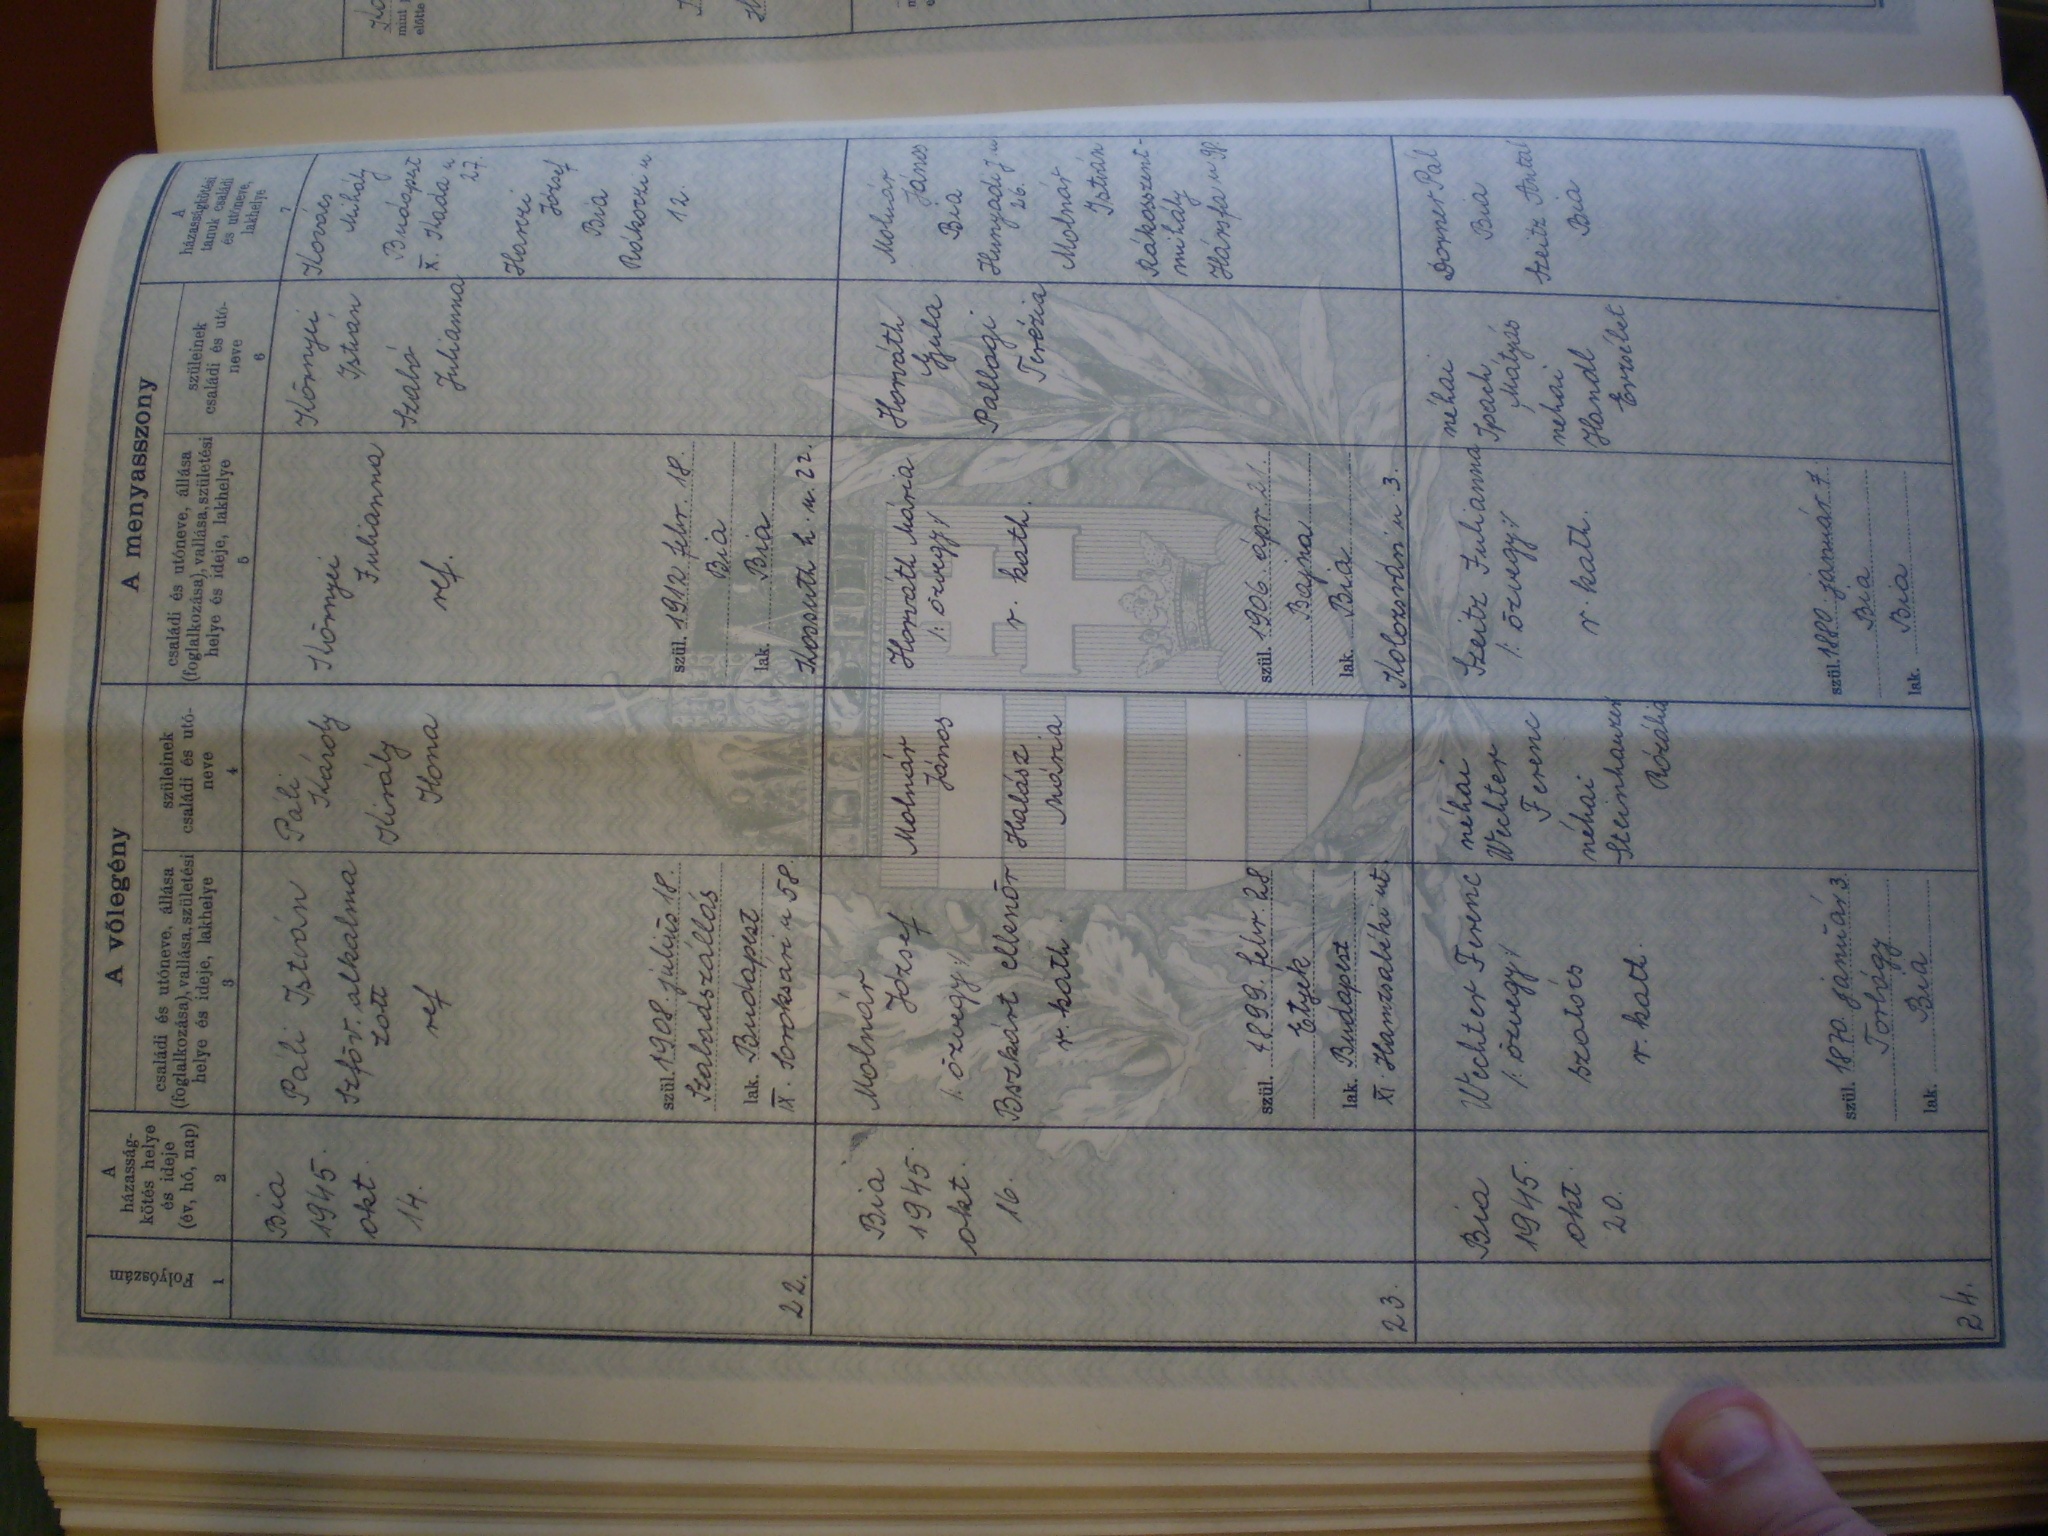 A vőlegény
A menyasszony
Folyószám
A
házasság-
kötés helye
és ideje
(év, hó, nap)
családi és utóneve, állása
(foglalkozása), vallása, születési
helye és ideje, lakhelye
szüleinek
családi és utó-
neve
családi és utóneve, állása
(foglalkozása), vallása, születési
helye és ideje, lakhelye
szüleinek
családi és utó-
neve
A
házasságkötési
tanuk családi
és utóneve,
lakhelye
1
2
3
4
5
6
7
22.
Bia
1945.
okt.
14.
Páli István
Szföv. alkalma
zott
ref
szül. 1908. július 18.
Szabadszállás
lak. Budapest
IX. Soroksári u 58.
Páli
Károly
Király
Ilona
Környei
Julianna
ref.
szül. 1912 febr. 18.
Bia
lak. Bia
Kossuth L. u. 22.
Környei
István
Szabó
Julianna
Kovács
Mihály
Budapest
X. Kada u
27.
József
Bia
Rákoczi u
12.
23.
Bia
1945.
okt.
16.
Molnár
József
/: özvegy :/
Bszkárt ellenőr
r. kath.
szül. 1899. febr. 28
Etyek
lak. Budapest
XI Hamzsabéki út.
Molnár
János
Halász
Mária
Horváth Mária
/: özvegy :/
r. kath.
szül. 1906. ápr. 21
Bajna
lak. Bia
Kolozsvári u 3.
Horváth
Gyula
Pallagi
Terézia
Molnár
János
Bia
Hunyadi J u
26.
Molnár
István
Rákosszent-
mihály
Hársfa u 98.
24.
Bia
1945.
okt.
20.
Wechter Ferenc
/: özvegy :/
szatócs
r. kath.
szül. 1870. január 3.
Torbágy
lak. Bia
néhai
Wechter
Ferenc
néhai
Steinhauzer
Rozália
Szeitz Julianna
/: özvegy :/
r. kath.
szül. 1880. január 7.
Bia
lak. Bia
néhai
Mátyás
néhai
Handl
Erzsébet
Dorner Pál
Bia
Szeitz Antal
Bia